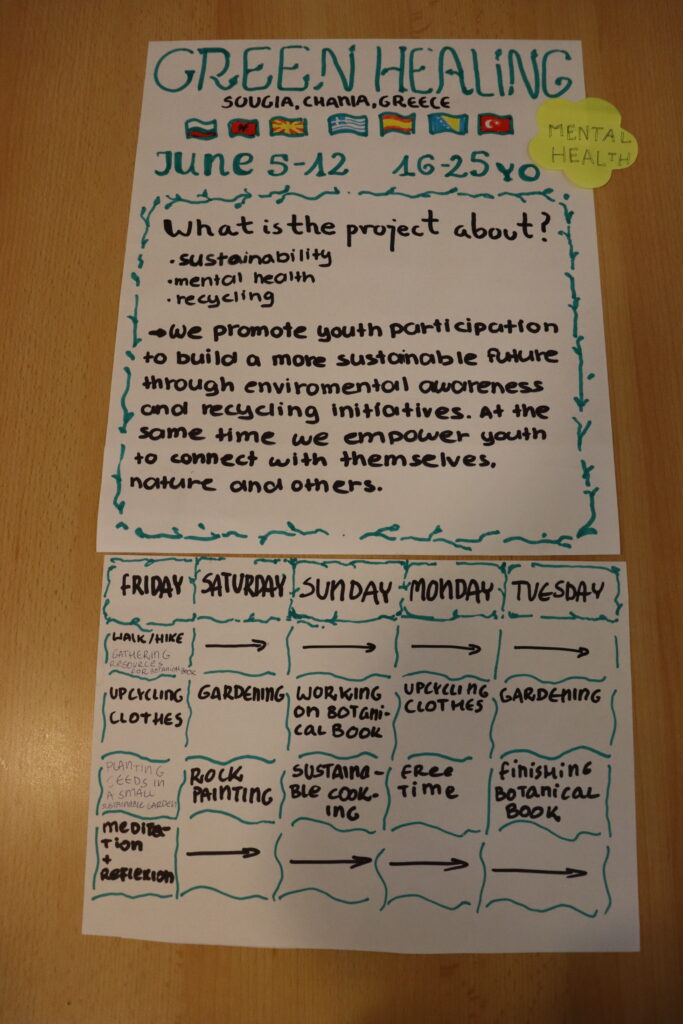 GREEN HEALING
SOUGIA, CHANIA, GREECE
June 5-12 16-25 YO
MENTAL
HEALTH
What is the project about?
• sustainability
• mental health
• recycling
→ We promote youth participation
to build a more sustainable future
through enviromental awareness
and recycling initiatives. At the
same time we empower youth
to connect with themselves,
nature and others.
FRIDAY SATURDAY SUNDAY MONDAY TUESDAY
WALK/HIKE → → → →
GATHERING
RESOURCES
FOR BOTANICAL BOOK
UPCYCLING
CLOTHES
GARDENING
WORKING
ON BOTANI-
CAL BOOK
UPCYCLING
CLOTHES
GARDENING
PLANTING
SEEDS IN
A SMALL
SUSTAINABLE GARDEN
ROCK
PAINTING
SUSTAINA-
BLE COOK-
ING
FREE
TIME
FINISHING
BOTANICAL
BOOK
MEDITA-
TION
+
REFLEXION
→ → → →